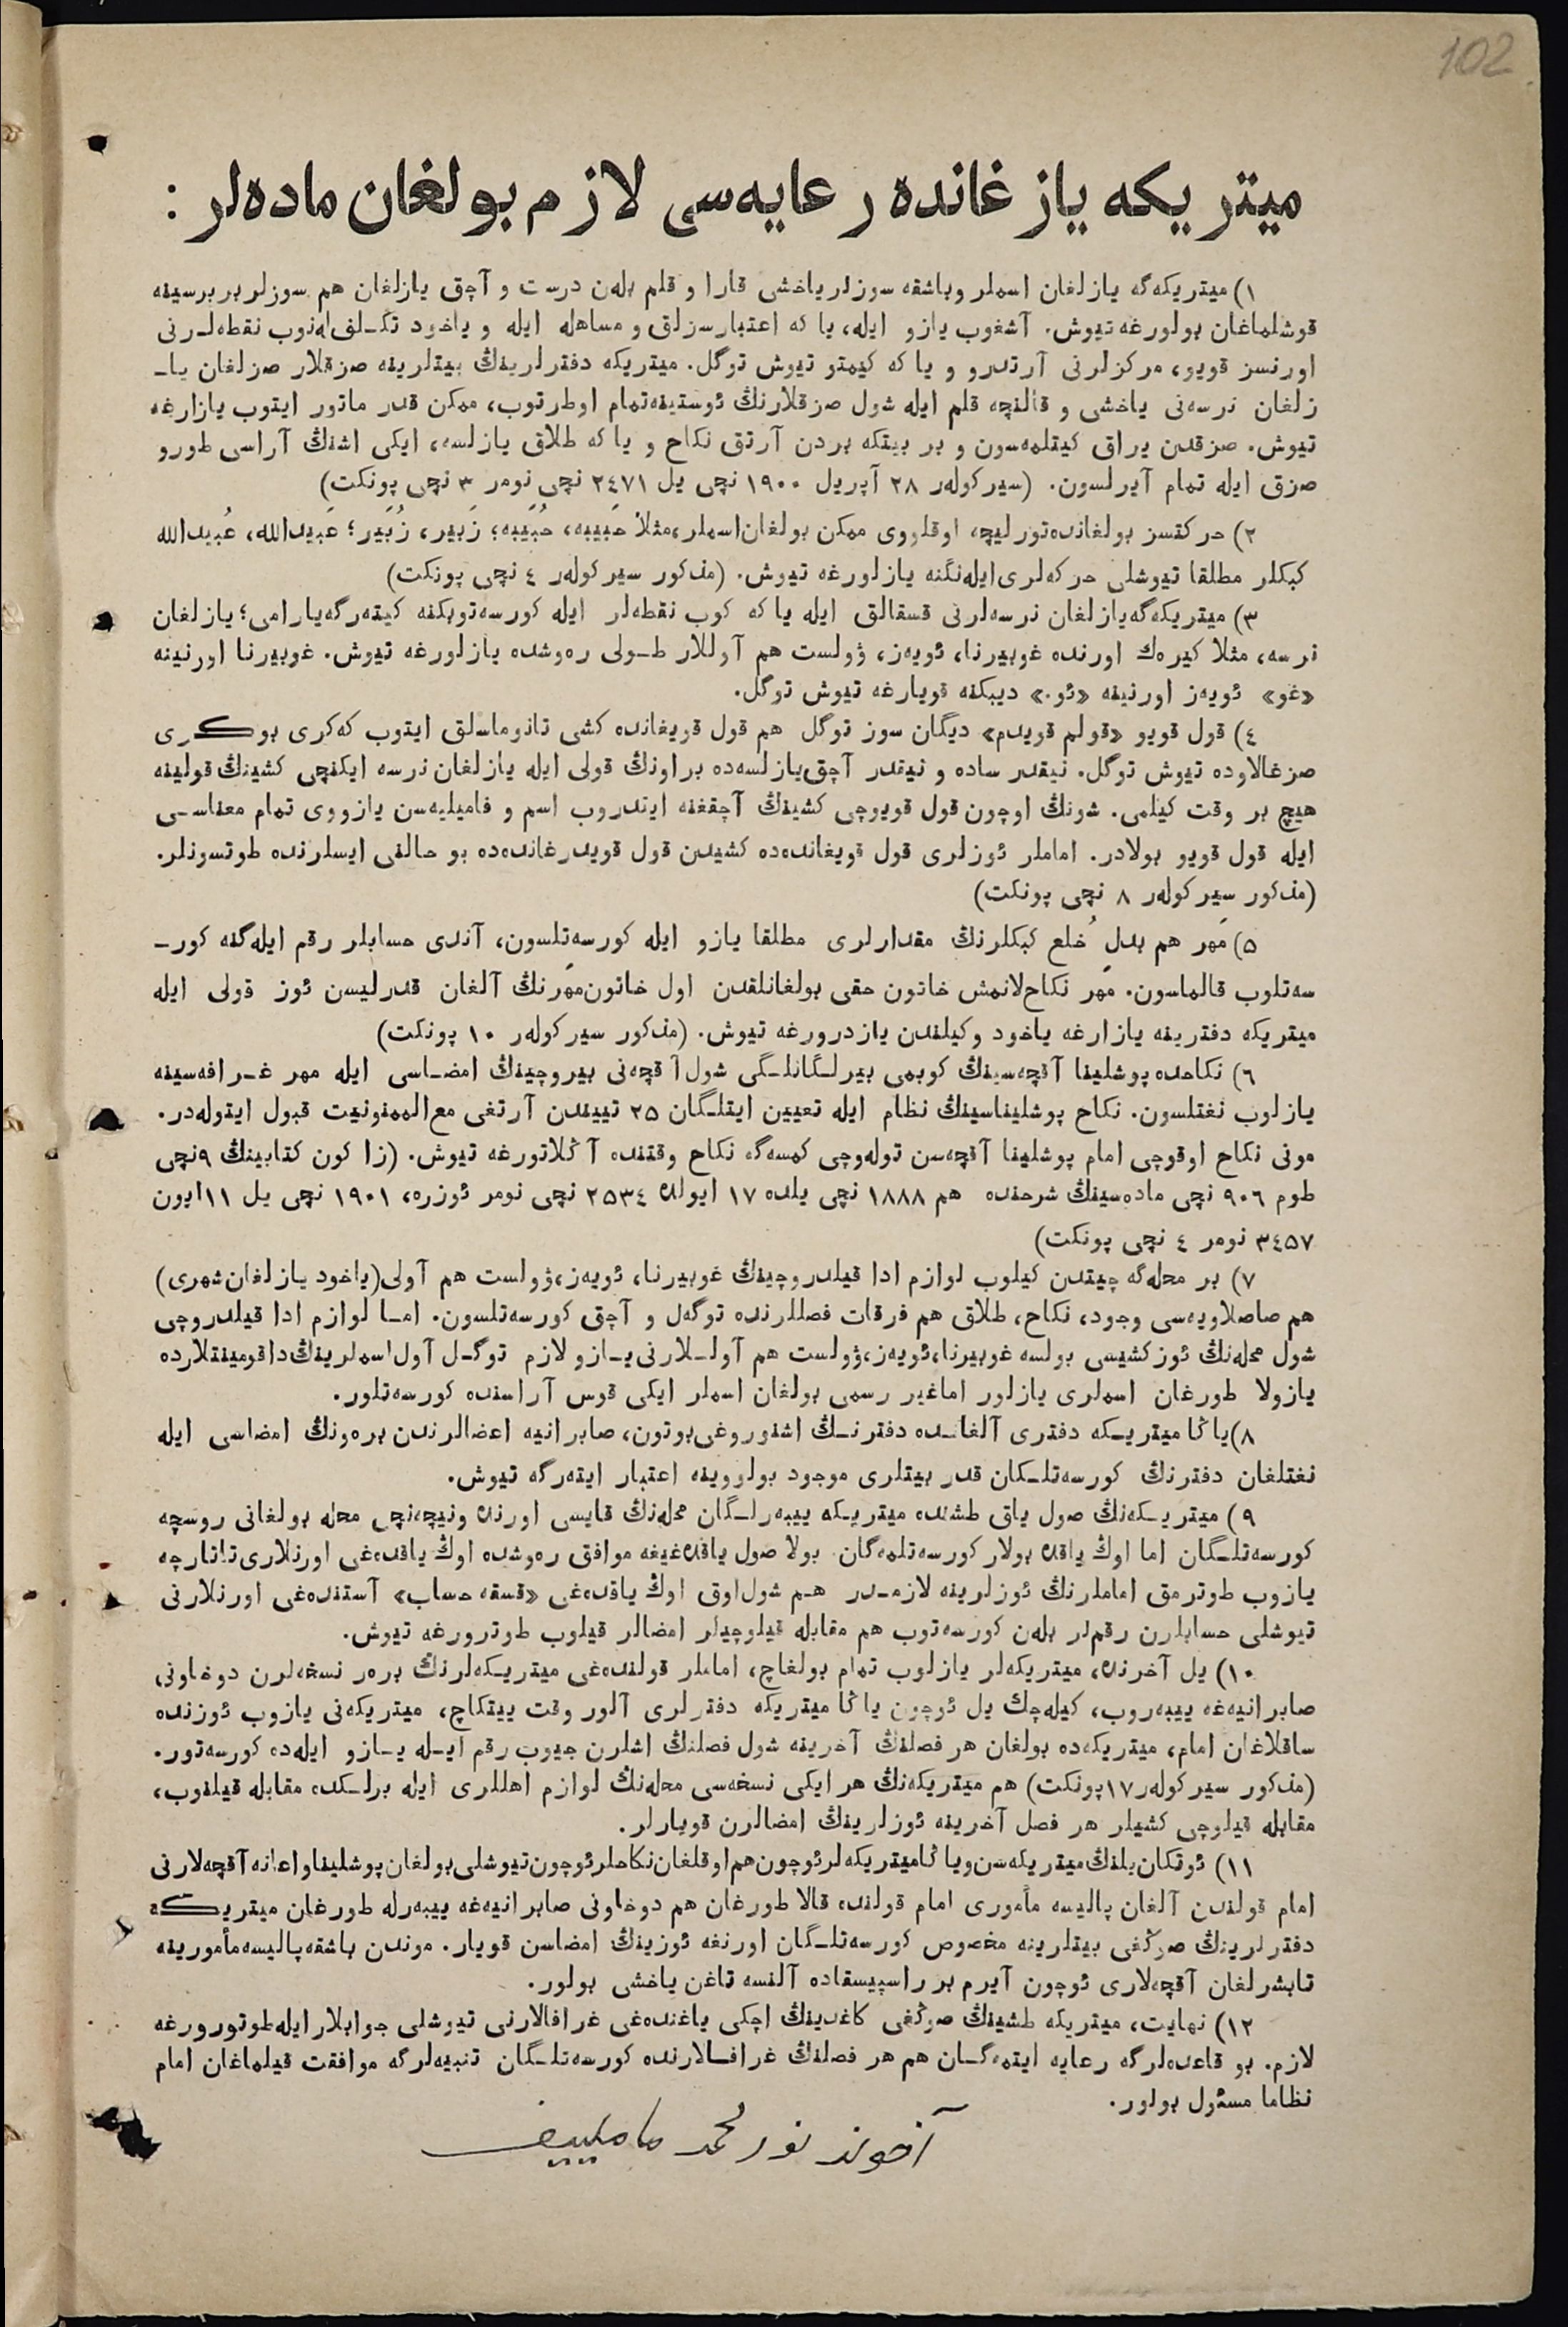 102
میتریکه یازغانده رعایه‌سی لازم بولغان ماده‌لر :
١) میتریکه‌گه یازلغان اسملر وباشقه سوزلریاخشی قارا و قلم بله‌ن درست و آچق یازلغان هم سوزلربربرسینه
قوشلماغان بولورغه تیوش. آشغوب یازو ایله، یا که اعتبارسزلق و مساهله ایله و یاخود تکـلف‌له‌نوب نقطه‌لـرنی
اورنسز قویو، مرکزلرنی آرتدرو و یا که کیمتو تیوش توگل. میتریکه دفترلرینڭ بیتلرینه صزقلار صزلغان یاـ
زلغان نرسه‌نی یاخشی و قالنچه قلم ایله شول صزقلارنڭ ئوستینه‌تمام اوطرتوب، ممکن قدر ماتور ایتوب یازارغه
تیوش. صزقدن یراق کیتلمه‌سون و بر بیتکه بردن آرتق نکاح و یا که طلاق یازلسه، ایکی اشنڭ آراسی طورو
صزق ایله تمام آیرلسون. (سیرکوله‌ر ٢٨ آپریل ١٩٠٠ نچی یل ٢٤٧١ نچی نومر ٣ نچی پونکت)
٢) حرکتسز بولغانده‌تورلیچه اوقلووی ممکن بولغان‌اسملر،مثلا حَبیبه، حُبَیبه؛ زَبیر، زُبَیر؛ عَبیدالله، عُبیدالله
کبکلر مطلقا تیوشلی حرکه‌لری‌ایله‌نگنه یازلورغه تیوش. (مذکور سیرکوله‌ر ٤ نچی پونکت)
٣) میتریکه‌گه‌یازلغان نرسه‌لرنی قسقالق ایله یا که کوب نقطه‌لر ایله کورسه‌توبکنه کیته‌رگه‌یارامی؛ یازلغان
نرسه، مثلا کیره‌ك اورنده غوبیرنا، ئویه‌ز، ؤولست هم آوللار طـولی ره‌وشده یازلورغه تیوش. غوبیرنا اورنینه
«غو» ئویه‌ز اورنینه «ئو.» دیبکنه قویارغه تیوش توگل.
٤) قول قویو «قولم قویدم» دیگان سوز توگل هم قول قویغانده کشی تانوماسلق ایتوب که‌کری بوکـری
صزغالاوده تیوش توگل. نیقدر ساده و نیقدر آچق‌یازلسه‌ده براونڭ قولی ایله یازلغان نرسه ایکنچی کشینڭ قولینه
هیچ بر وقت کیلمی. شونڭ اوچون قول قویوچی کشینڭ آچقغنه ایتدروب اسم و فامیلیه‌سن یازووی تمام معناسـی
ایله قول قویو بولادر. اماملر ئوزلری قول قویغانده‌ده کشیدن قول قویدرغانده‌ده بو حالنی ایسلرنده طوتسونلر.
(مذکور سیرکوله‌ر ٨ نچی پونکت)
٥) مَهر هم بدلِ خُلع کبکلرنڭ مقدارلری مطلقا یازو ایله کورسه‌تلسون، آندی حسابلر رقم ایله‌گنه کورـ
سه‌تلوب قالماسون. مَهر نکاح‌لانمش خاتون حقی بولغانلقدن اول خاتون‌مَهرنڭ آلغان قدرلیسن ئوز قولی ایله
میتریکه دفترینه یازارغه یاخود وکیلندن یازدرورغه تیوش. (مذکور سیرکوله‌ر ١٠ پونکت)
٦) نکاحده پوشلینا آقچه‌سینڭ کوبمی بیرلـگانلـگی شول آقچه‌نی بیروچینڭ امضـاسی ایله مهر غـرافه‌سینه
یازلوب نغتلسون. نکاح پوشلیناسینڭ نظام ایله تعیین ایتلـگان ٢٥ تییندن آرتغی مع‌الممنونیت قبول ایتوله‌در.
مونی نکاح اوقوچی امام پوشلینا آقچه‌سن توله‌وچی کمسه‌گه نکاح وقتنده آڭلاتورغه تیوش. (زاکون کتابینڭ ٩نچی
طوم ٩٠٦ نچی ماده‌سینڭ شرحنده هم ١٨٨٨ نچی یلده ١٧ ایولده ٢٥٣٤ نچی نومر ئوزره، ١٩٠١ نچی یل ١١ایون
٣٤٥٧ نومر ٤ نچی پونکت)
٧) بر محله‌گه چیتدن کیلوب لوازم ادا قیلدروچینڭ غوبیرنا، ئویه‌ز،ؤولست هم آولی(یاخود یازلغان‌شهری)
هم صاصلاویه‌سی وجود، نکاح، طلاق هم فرقات فصللرنده توگه‌ل و آچق کورسه‌تلسون. امـا لوازم ادا قیلدروچی
شول محله‌نڭ ئوز کشیسی بولسه غوبیرنا،ئویه‌ز،ؤولست هم آولـلارنی‌یـازو لازم توگـل آول‌اسملرینڭ‌داقومینتلارده
یازولا طورغان اسملری یازلور اماغیر رسمی بولغان اسملر ایکی قوس آراسنده کورسه‌تلور.
٨)یاڭا میتریـکه دفتری آلغانـده دفترنـڭ اشنوروغی‌بوتون، صابرانیه اعضالرندن بره‌ونڭ امضاسی ایله
نغتلغان دفترنڭ کورسه‌تلـکان قدر بیتلری موجود بولووینه اعتبار ایته‌رگه تیوش.
٩) میتریـکه‌نڭ صول یاق طشنده میتریـکه ییبه‌رلـگان محله‌نڭ قایسی اورنده ونیچه‌نچی محله بولغانی روسچه
کورسه‌تلـگان اما اوڭ یاقده بولار کورسه‌تلمه‌گان بولا صول یاقده‌غیغه موافق ره‌وشده اوڭ یاقده‌غی اورنلاری‌تاتارچه
یازوب طوترمق اماملرنڭ ئوزلرینه لازمـدر هـم شول‌اوق اوڭ یاقده‌غی «قسقه حساب» آستنده‌غی اورنلارنی
تیوشلی حسابلرن رقملر بله‌ن کورسه‌توب هم مقابله قیلوچیلر امضالر قیلوب طوترورغه تیوش.
١٠) یل آخرنده، میتریکه‌لر یازلوب تمام بولغاچ، اماملر قولنده‌غی میتریـکه‌لرنڭ بره‌ر نسخه‌لرن دوخاونی
صابرانیه‌غه ییبه‌روب، کیله‌چك یل ئوچون یاڭا میتریکه دفترلری آلور وقت ییتکاچ، میتریکه‌نی یازوب ئوزنده
ساقلاغان امام، میتریکه‌ده بولغان هر فصلنڭ آخرینه شول فصلنڭ اشلرن جیوب رقم ایـله یـازو ایله‌ده کورسه‌تور.
(مذکور سیرکوله‌ر١٧پونکت) هم میتریکه‌نڭ هر ایکی نسخه‌سی محله‌نڭ لوازم اهللری ایله برلـکده مقابله قیلنوب،
مقابله قیلوچی کشیلر هر فصل آخرینه ئوزلرینڭ امضالرن قویارلر.
١١) ئوتکان‌یلنڭ‌میتریکه‌سن‌ویاڭامیتریکه‌لرئوچون‌هم‌اوقلغان‌نکاحلرئوچون‌تیوشلی‌بولغان‌پوشلیناواعانه‌آقچه‌لارنی
امام قولندن آلغان پالیسه مأموری امام قولنده قالا طورغان هم دوخاونی صابرانیه‌غه ییبه‌رله طورغان میتریـکه
دفترلرینڭ صوڭغی بیتلرینه مخصوص کورسه‌تلـگان اورنغه ئوزینڭ امضاسن قویار. موندن باشقه‌پالیسه‌مأمورینه
تابشرلغان آقچه‌لاری ئوچون آیرم بر راسپیسقاده آلنسه تاغن یاخشی بولور.
١٢) نهایت، میتریکه طشینڭ صوڭغی کاغدینڭ اچکی یاغنده‌غی غرافالارنی تیوشلی جوابلارایله‌طوتورورغه
لازم. بو قاعده‌لرگه رعایه ایتمه‌گـان هم هر فصلنڭ غرافـالارنده کورسه‌تلـگان تنبیه‌لرگه موافقت قیلماغان امام
نظاما مسئول بولور.
آخوند نور محمد ماملییف